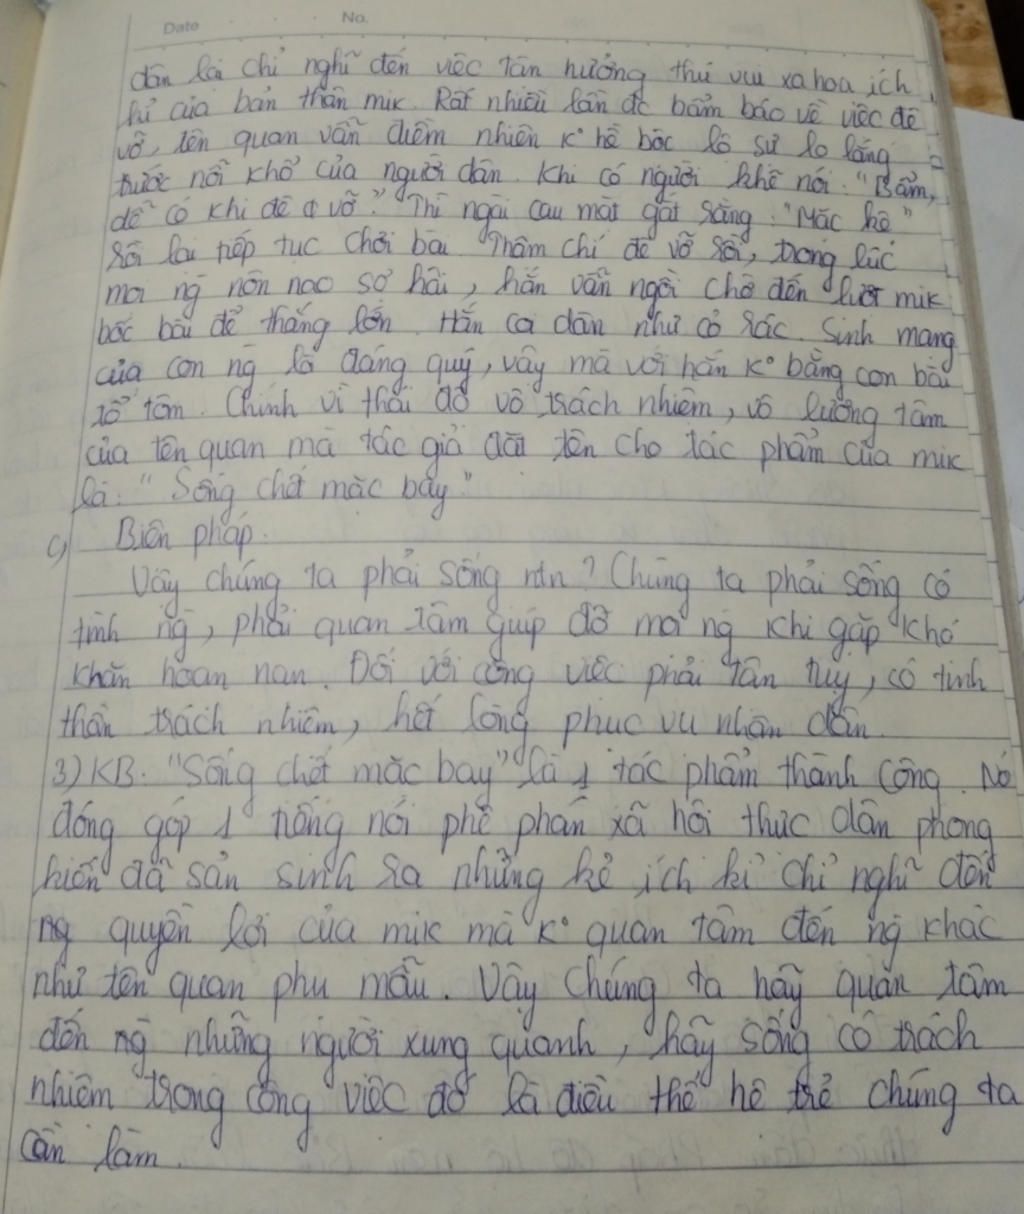 Date No.
dân lại chỉ nghĩ đến việc tận hưởng thú vui xa hoa ích
kỉ của bản thân mik. Rất nhiều lần đc bẩm báo về việc đê
vỡ, tên quan vẫn điềm nhiên k° hề bộc lộ sự lo lắng
trước nỗi khổ của người dân. Khi có người khẽ nói: "Bẩm,
dễ có khi đê vỡ." Thì ngài cau mặt gắt rằng: "Mặc kệ"
Rồi lại tiếp tục chơi bài. Thậm chí đê vỡ rồi, trong lúc
mọi ng nôn nao sợ hãi, hắn vẫn ngồi chờ đến lượt mik
bốc bài để thắng lớn. Hắn coi dân như cỏ rác. Sinh mạng
của con ng là đáng quý, vậy mà với hắn k° bằng con bài
tổ tôm. Chính vì thái độ vô trách nhiệm, vô lương tâm
của tên quan mà tác giả đặt tên cho tác phẩm của mik
là: "Sống chết mặc bay"
c) Biện pháp.
Vậy chúng ta phải sống ntn? Chúng ta phải sống có
tình ng, phải quan tâm giúp đỡ mọi ng khi gặp khó
khăn hoạn nạn. Đối với công việc phải tận tụy, có tinh
thần trách nhiệm, hết lòng phục vụ nhân dân.
3) KB. "Sống chết mặc bay" là 1 tác phẩm thành công. Nó
đóng góp 1 tiếng nói phê phán xã hội thực dân phong
kiến đã sản sinh ra những kẻ ích kỉ chỉ nghĩ đến
ng quyền lợi của mik mà k° quan tâm đến ng khác
như tên quan phụ mẫu. Vậy chúng ta hãy quan tâm
đến ng những người xung quanh, hãy sống có trách
nhiệm trong công việc đó là điều thế hệ trẻ chúng ta
cần làm.